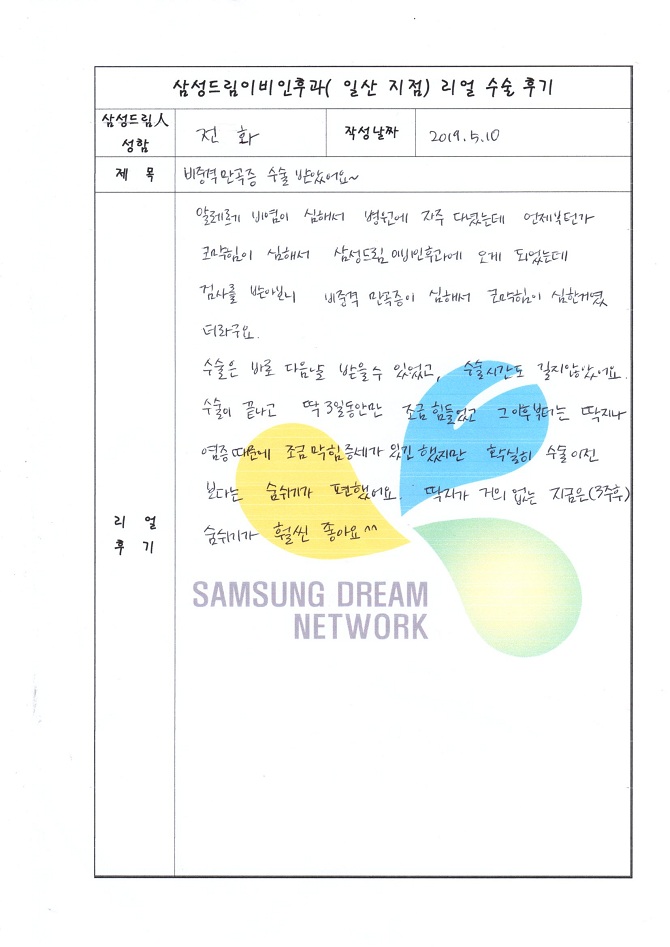 삼성드림이비인후과( 일산 지점) 리얼 수술 후기
삼성드림人 성함
전 화
작성날짜
2019.5.10
제 목
비중격만곡증 수술 받았어요~
리 얼 후 기
알레르기 비염이 심해서 병원에 자주 다녔는데 언제부턴가
코막힘이 심해서 삼성드림이비인후과에 오게 되었는데
검사를 받아보니 비중격 만곡증이 심해서 코막힘이 심한거였
더라구요.
수술은 바로 다음날 받을수 있었고, 수술시간도 길지않았어요.
수술이 끝나고 딱 3일동안만 조금 힘들었고 그이후부터는 딱지나
염증때문에 조금 막힘증세가 있긴 했지만 확실히 수술이전
보다는 숨쉬기가 편했어요. 딱지가 거의 없는 지금은(3주후)
숨쉬기가 훨씬 좋아요^^
SAMSUNG DREAM
NETWORK